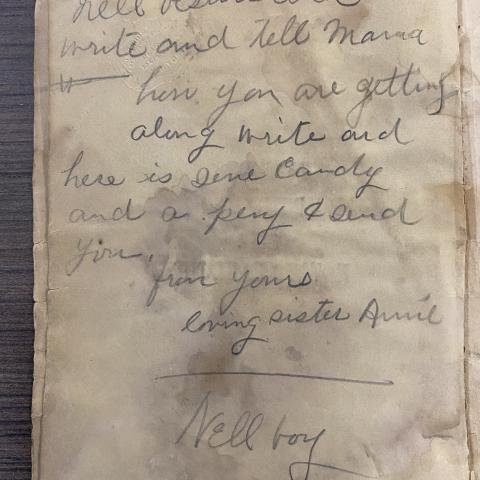 write and tell Mama
how you are getting
along write and
here is some Candy
and a peny I send
you.
from yours
loving sister Annie
Nell boy